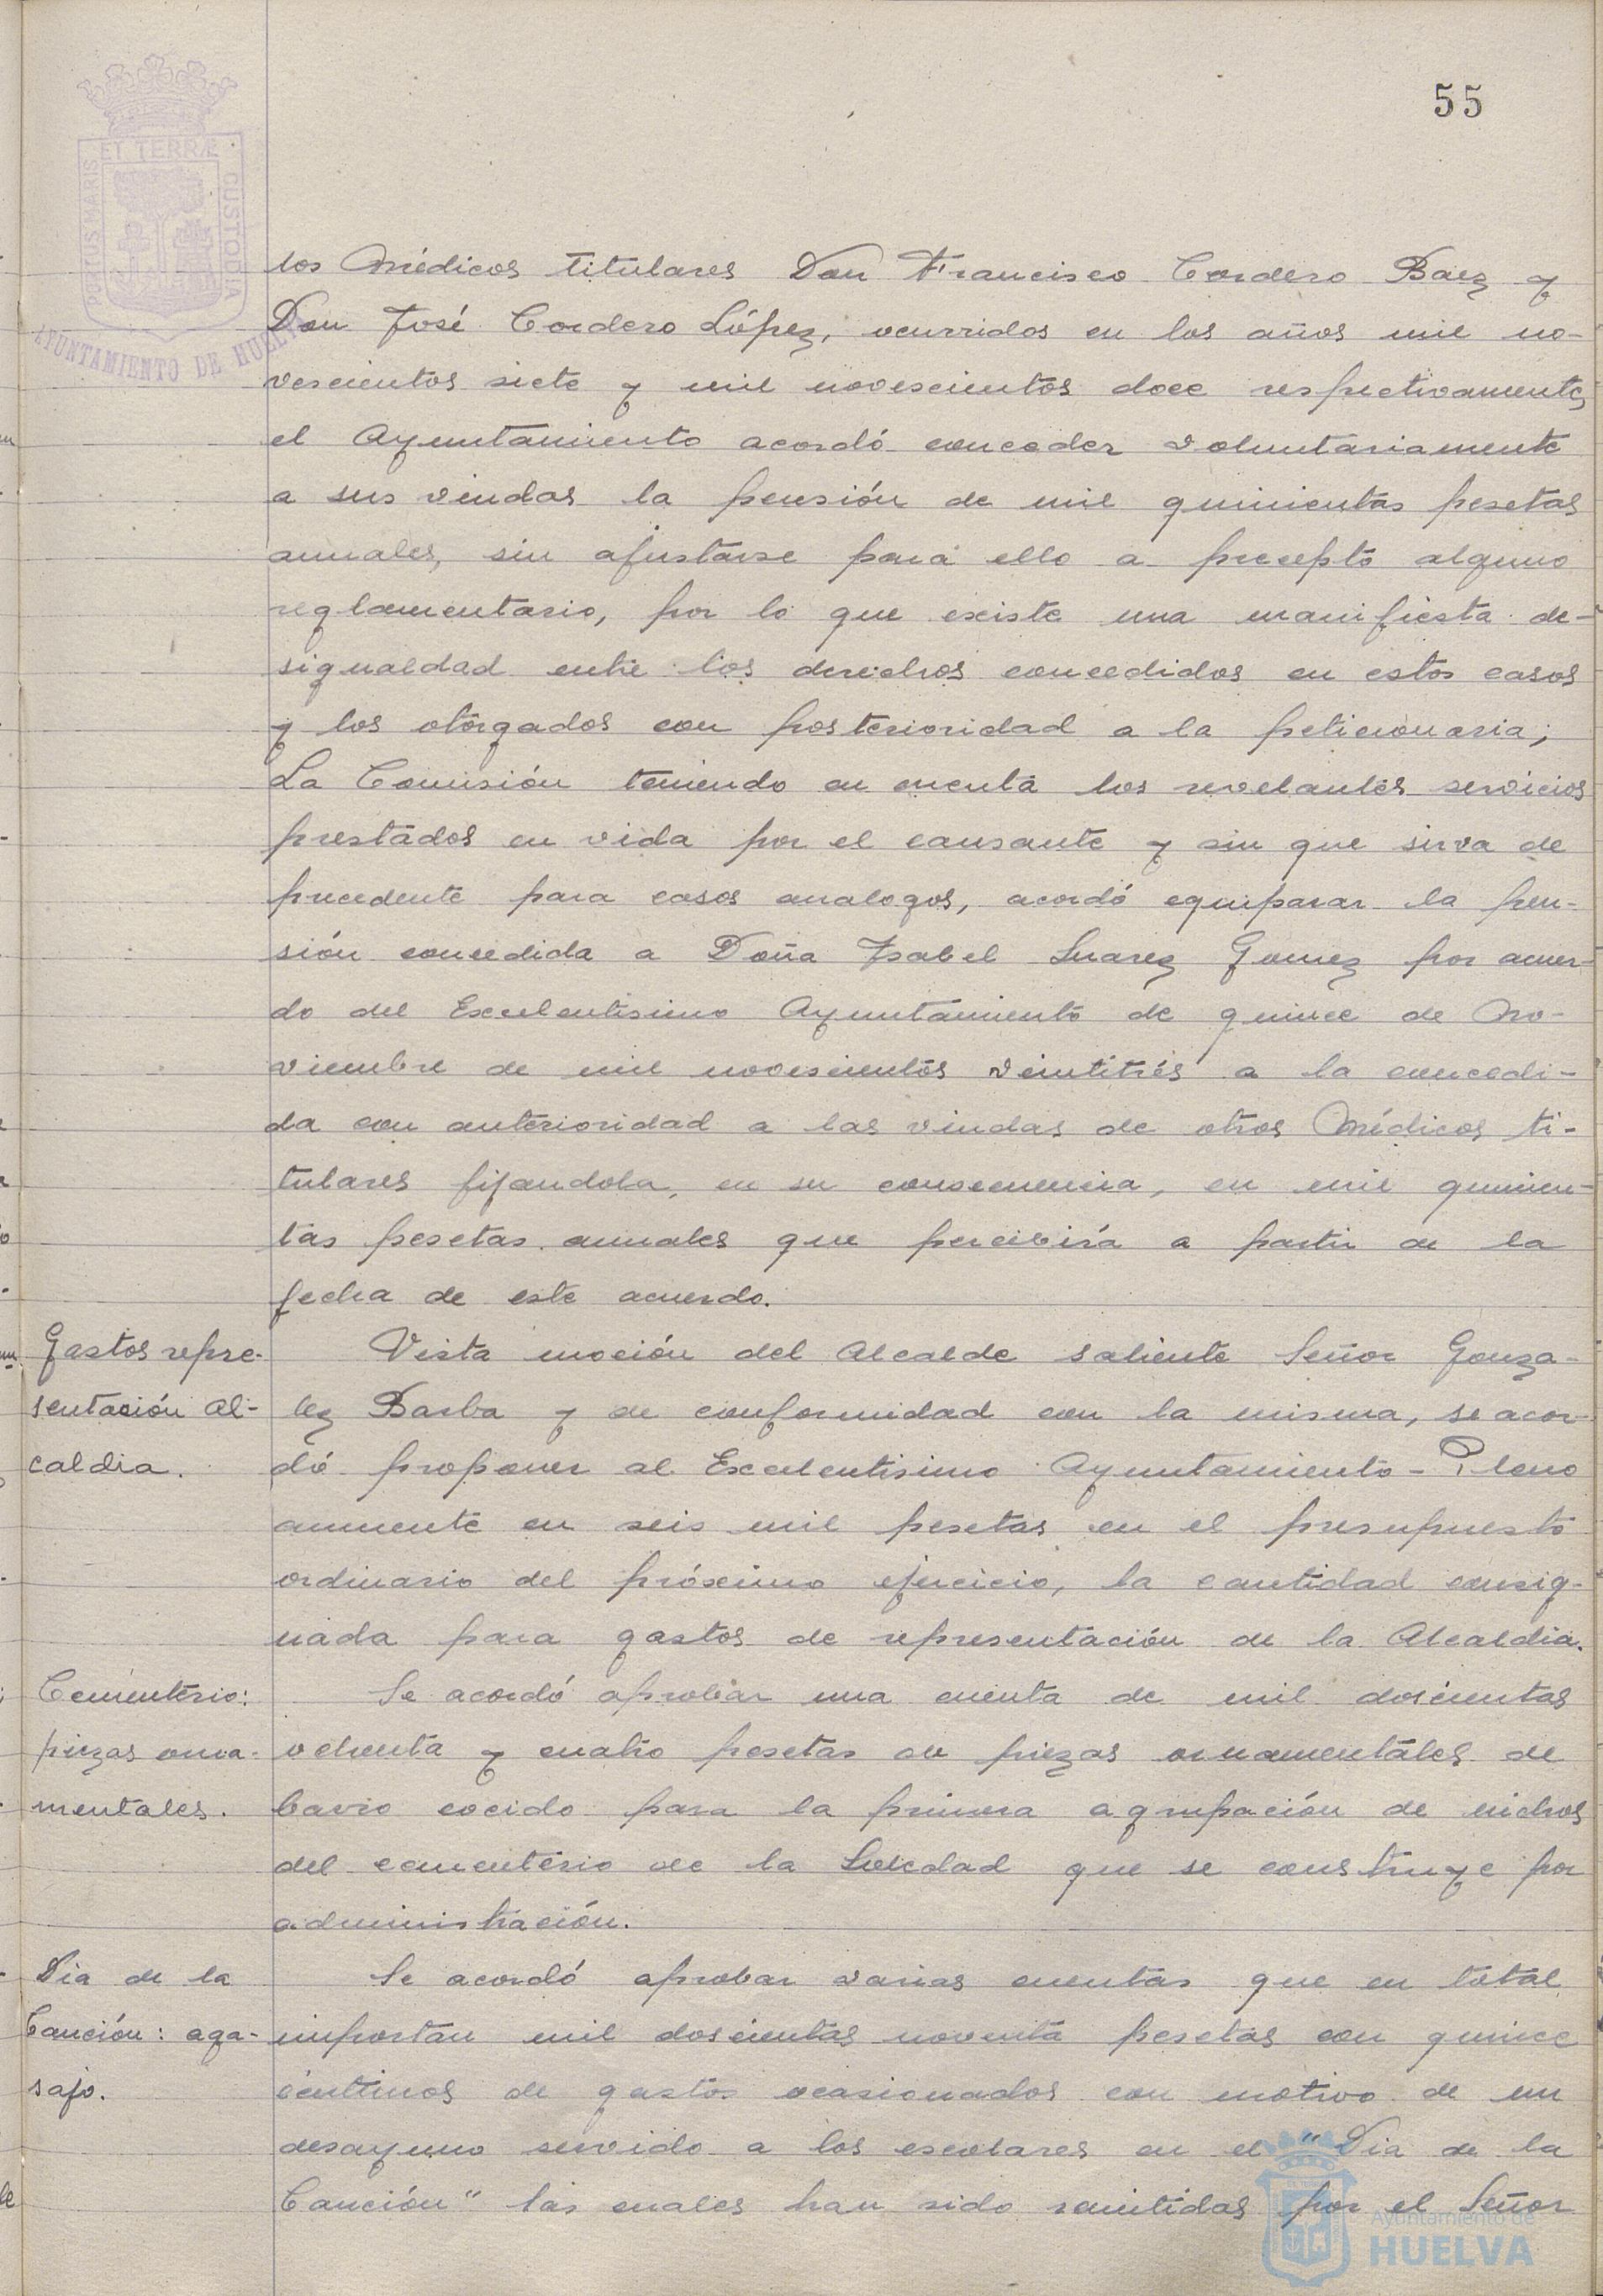 55
PORTUS MARIS ET TERRÆ CUSTODIA
AYUNTAMIENTO DE HUELVA
los Médicos titulares Don Francisco Cordero Baez y
Don José Cordero López, ocurridos en los años mil no-
vescientos siete y mil novescientos doce respectivamente,
el Ayuntamiento acordó conceder voluntariamente
a sus viudas la pensión de mil quinientas pesetas
anuales, sin ajustarse para ello a precepto alguno
reglamentario, por lo que existe una manifiesta de-
sigualdad entre los derechos concedidos en estos casos
y los otorgados con posterioridad a la peticionaria;
La Comisión teniendo en cuenta los revelantes servicios
prestados en vida por el causante y sin que sirva de
precedente para casos analogos, acordó equiparar la pen-
sión concedida a Doña Isabel Suarez Gomez por acuer-
do del Excelentisimo Ayuntamiento de quince de No-
viembre de mil novescientos veintitrés a la concedi-
da con anterioridad a las viudas de otros Médicos ti-
tulares fijandola, en su consecuencia, en mil quinien-
tas pesetas anuales que percibirá a partir de la
fecha de este acuerdo.
Gastos repre-
sentación Al-
caldia.
Vista moción del Alcalde saliente Señor Gonza-
lez Barba y de conformidad con la misma, se acor-
dó proponer al Excelentisimo Ayuntamiento-Pleno
aumente en seis mil pesetas en el presupuesto
ordinario del próximo ejercicio, la cantidad consig-
nada para gastos de representación de la Alcaldia.
Cementerio:
piezas orna-
mentales.
Se acordó aprobar una cuenta de mil doscientas
ochenta y cuatro pesetas de piezas ornamentales de
barro cocido para la primera agrupación de nichos
del cementerio de la Soledad que se construye por
administración.
Dia de la
Canción: aga-
sajo.
Se acordó aprobar varias cuentas que en total
importan mil doscientas noventa pesetas con quince
centimos de gastos ocasionados con motivo de un
desayuno servido a los escolares en el "Dia de la
Canción" las cuales han sido remitidas por el Señor
Ayuntamiento de
HUELVA